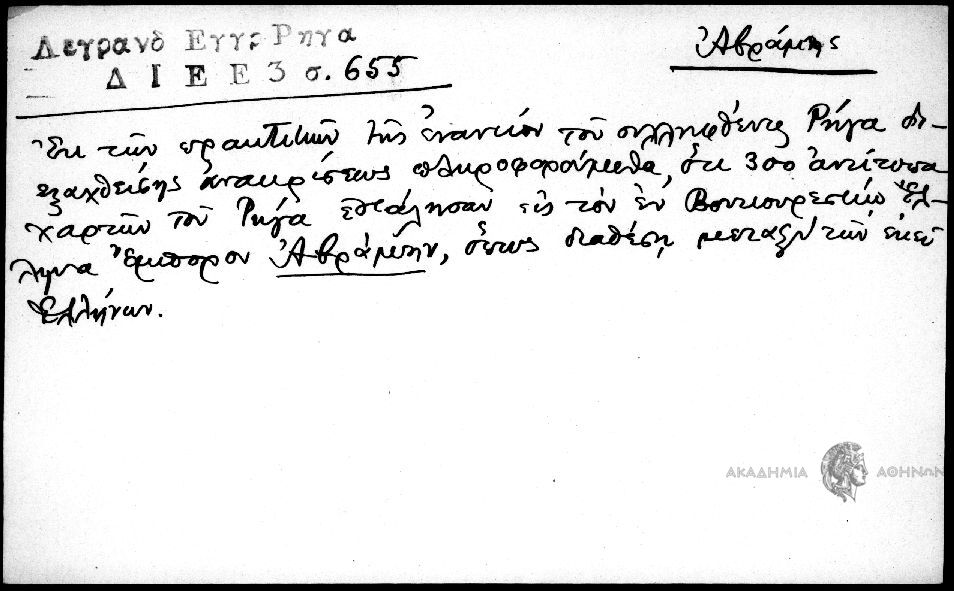 Λεγρανδ Εγγρ Ρηγα
Ἀβράμης
Δ Ι Ε Ε 3 σ. 655
Ἐκ τῶν πρακτικῶν τῆς ἐναντίον τοῦ συλληφθέντος Ρήγα δι-
εξαχθείσης ἀνακρίσεως πληροφορούμεθα, ὅτι 300 ἀντίτυπα
χαρτῶν τοῦ Ρήγα ἐστάλησαν εἰς τὸν ἐν Βουκουρεστίῳ Ἕλ-
ληνα ἔμπορον Ἀβράμην, ὅπως διαθέσῃ μεταξὺ τῶν ἐκεῖ
Ἑλλήνων.
ΑΚΑΔΗΜΙΑ ΑΘΗΝΩΝ